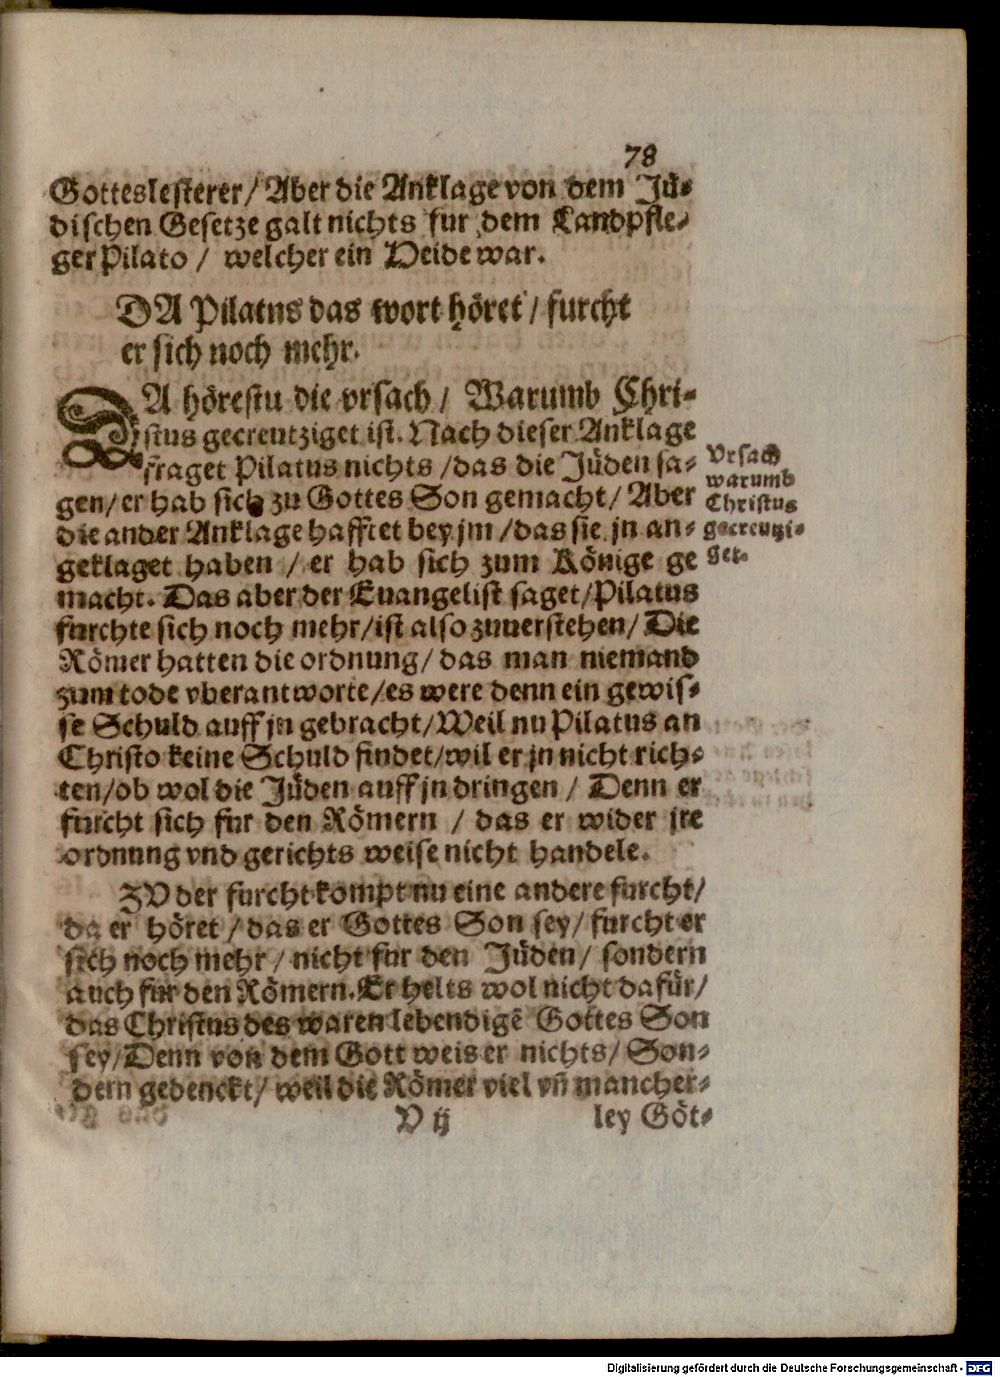 78
Gotteslesterer/ Aber die Anklage von dem Jü-
dischen Gesetze galt nichts fur dem Landpfle-
ger Pilato / welcher ein Heide war.
DA Pilatus das wort höret / furcht
er sich noch mehr.
DA hörestu die vrsach / Warumb Chri-
stus gecreutziget ist. Nach dieser Anklage
fraget Pilatus nichts / das die Jüden sa-
gen / er hab sich zu Gottes Son gemacht / Aber
die ander Anklage hafftet bey jm / das sie jn an-
geklaget haben / er hab sich zum Könige ge
macht. Das aber der Euangelist saget / Pilatus
furchte sich noch mehr / ist also zuuerstehen / Die
Römer hatten die ordnung / das man niemand
zum tode vberantworte / es were denn ein gewis-
se Schuld auff jn gebracht / Weil nu Pilatus an
Christo keine Schuld findet / wil er jn nicht rich-
ten / ob wol die Jüden auff jn dringen / Denn er
furcht sich fur den Römern / das er wider jre
ordnung vnd gerichts weise nicht handele.
Vrsach
warumb
Christus
gecreutzi-
get.
ZV der furcht kompt nu eine andere furcht /
da er höret / das er Gottes Son sey / furcht er
sich noch mehr / nicht fur den Jüden / sondern
auch fur den Römern. Er helts wol nicht dafür /
das Christus des waren lebendigē Gottes Son
sey / Denn von dem Gott weis er nichts / Son-
dern gedenckt / weil die Römer viel vn̄ mancher-
V ij
ley Göt-
Digitalisierung gefördert durch die Deutsche Forschungsgemeinschaft - DFG